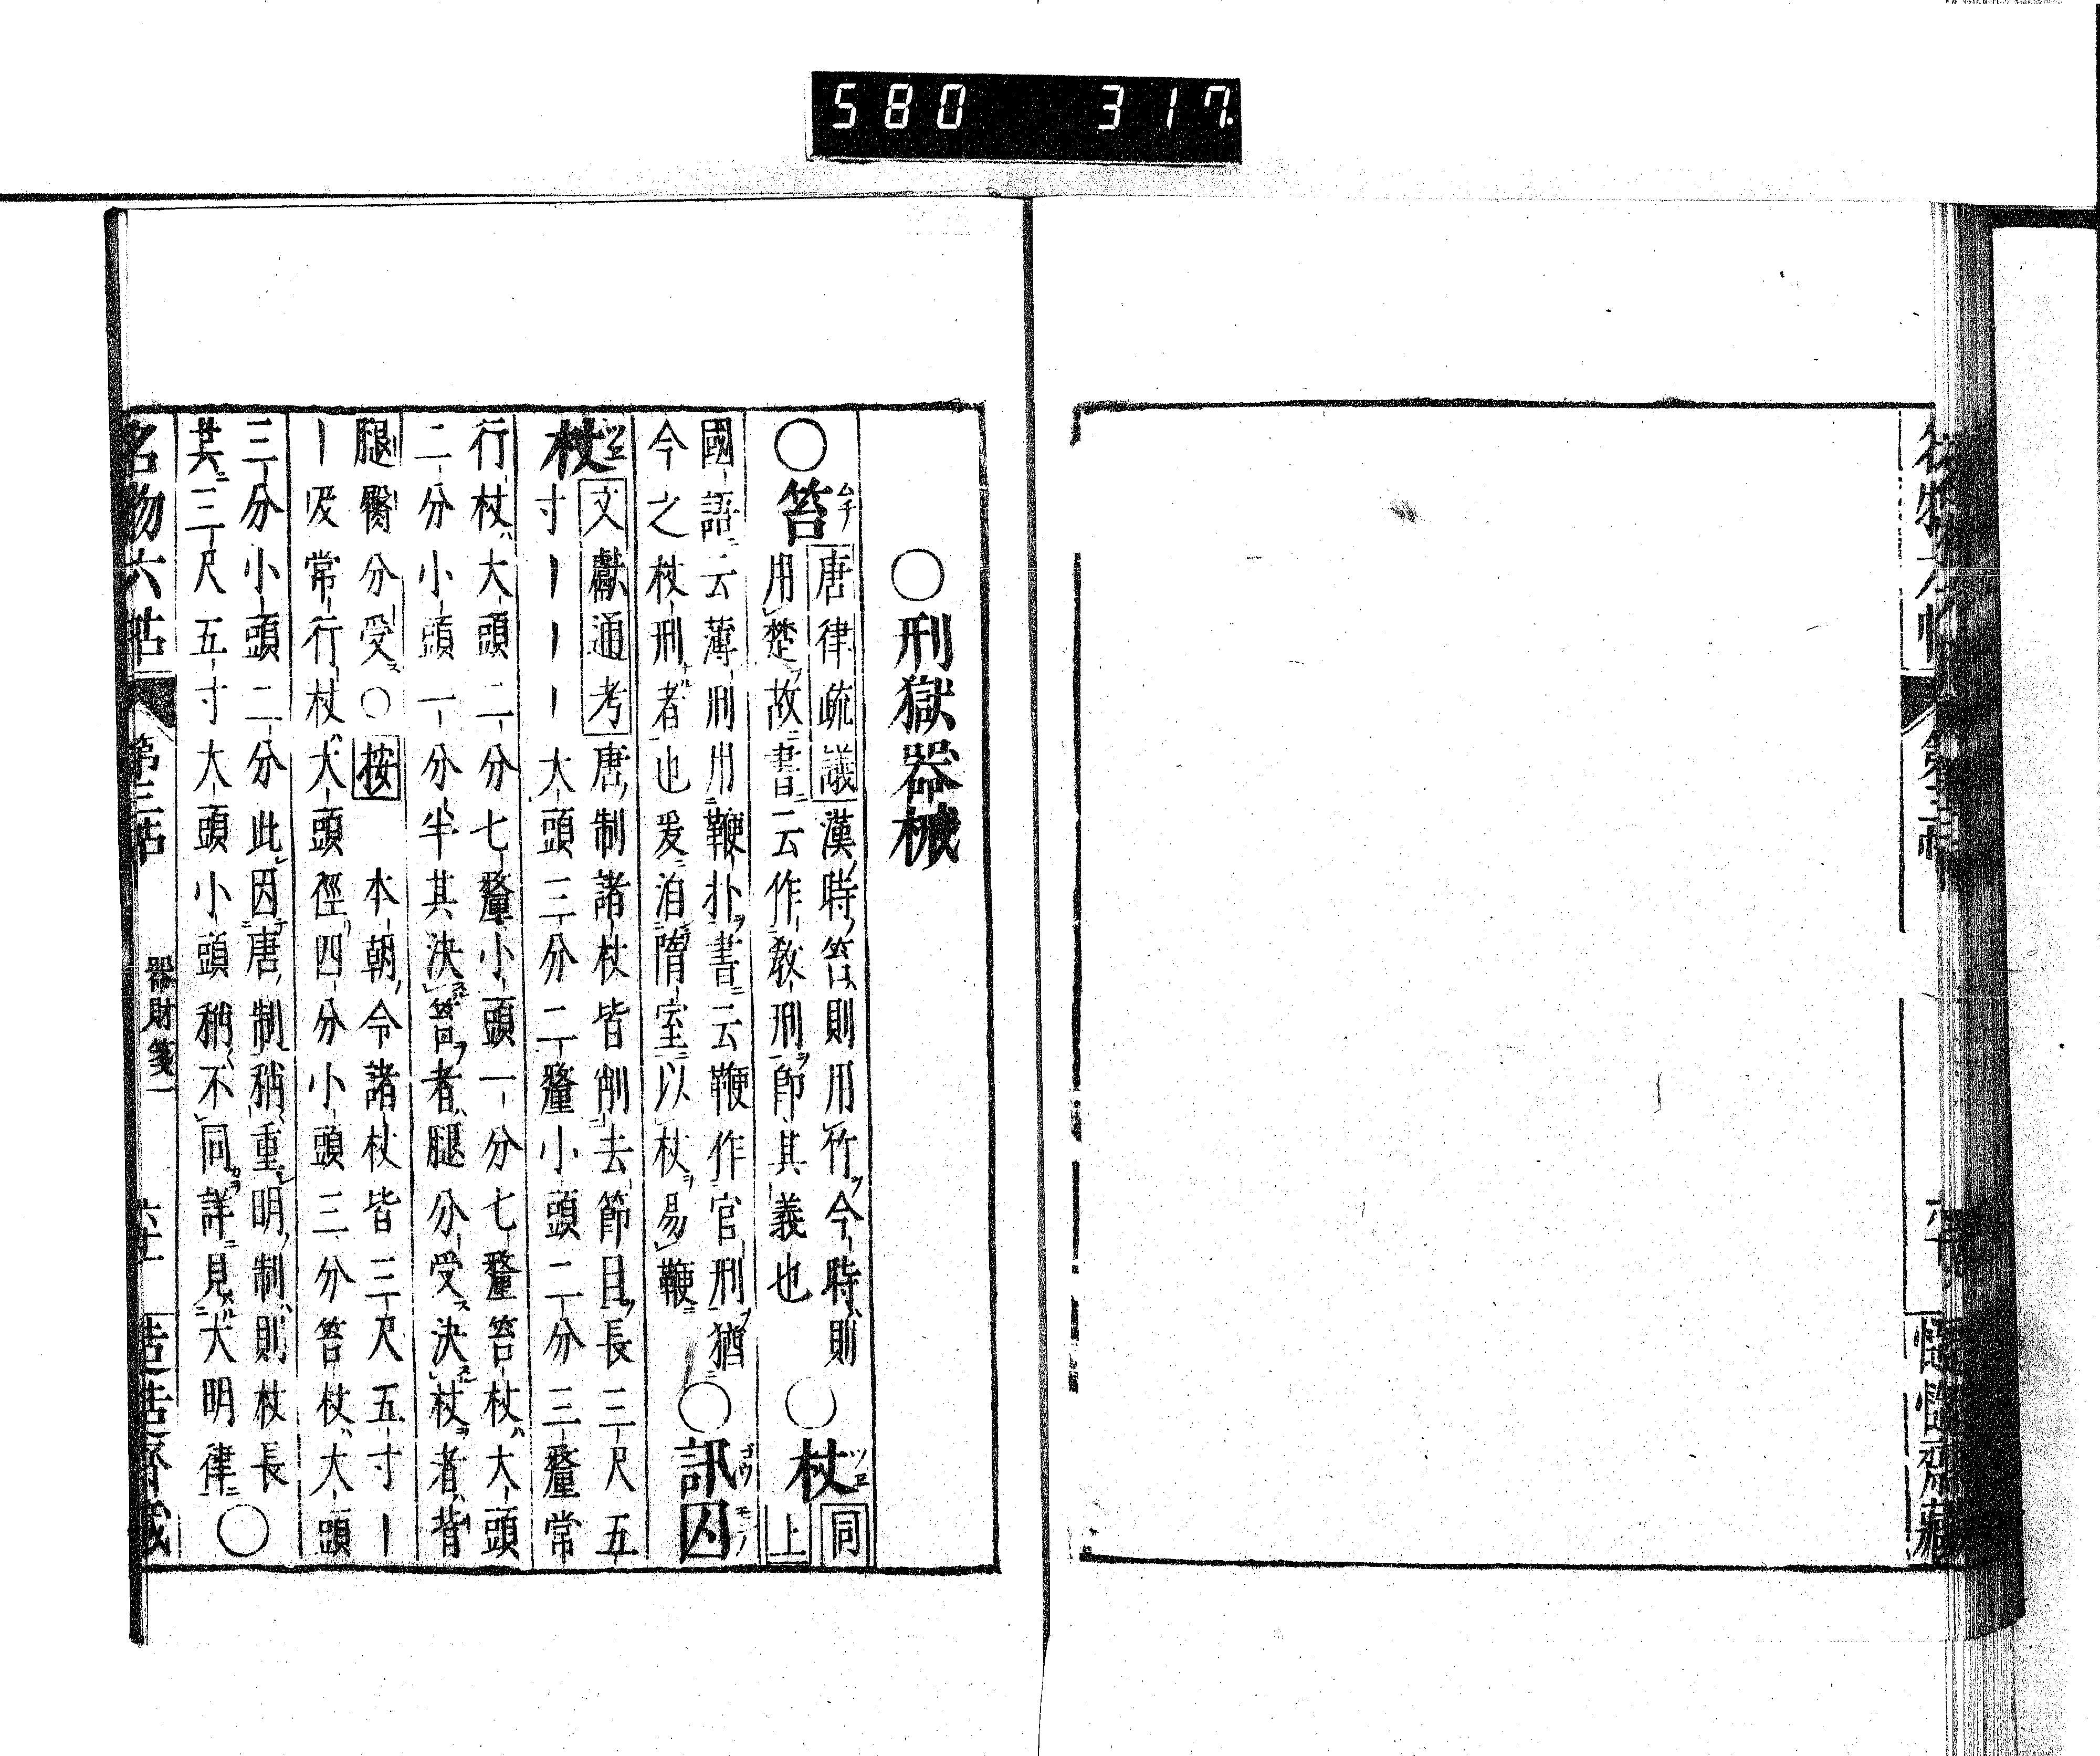 580 317
○刑獄器械
○笞ムチ 唐律疏議漢時笞則用竹今時則
用楚故書云作教刑即其義也
○杖ツヱ 同
上
國語云薄刑用鞭扑書云鞭作官刑猶
今之杖刑者也爰洎隋室以杖易鞭
○訊囚ゴウモンノ
杖ツヱ 文獻通考唐制諸杖皆削去節目長三尺五
寸ーーー大頭三分二釐小頭二分三釐常
行杖大頭二分七釐小頭一分七釐笞杖大頭
二分小頭一分半其決笞者腿分受決杖者背
腿臀分受○按 本朝令諸杖皆三尺五寸ー
ー及常行杖大頭徑四分小頭三分笞杖大頭
三分小頭二分此因唐制稍重明制則杖長
其三尺五寸大頭小頭稍不同詳見大明律○
名物六帖 第三帖 器財箋一